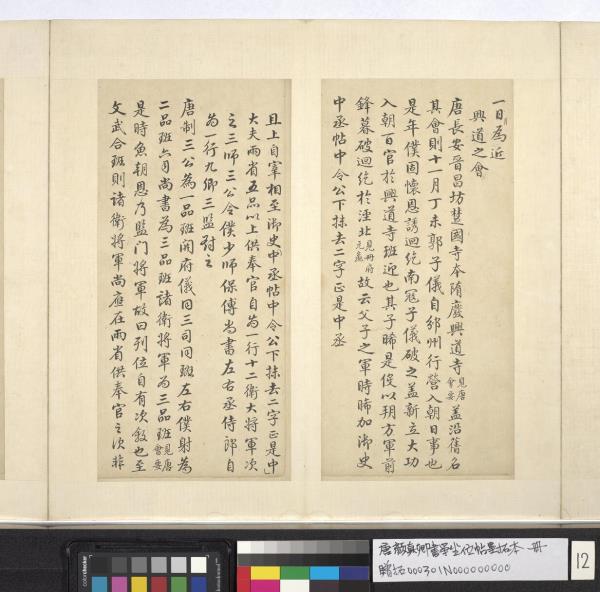 一日為近
興道之會
唐長安晉昌坊楚國寺本隋廢興道寺見唐會要蓋沿舊名
其會則十一月丁未郭子儀自邠州行營入朝日事也
是年僕固懷恩誘迴紇南寇子儀破之蓋新立大功
入朝百官於興道寺班迎也其子晞是役以朔方軍前
鋒暮破迴紇於涇北見冊府元龜故云父子之軍時晞加御史
中丞帖中令公下抹去二字正是中丞
且上自宰相至御史中丞帖中令公下抹去二字正是中
大夫兩省五品以上供奉官自為一行十二衛大將軍次
之三師三公令僕少師保傅尚書左右丞侍郎自
為一行九卿三監對之
唐制三公為一品班開府儀同三司同班左右僕射為
二品班六司尚書為三品班諸衛將軍為三品班見唐會要
是時魚朝恩乃監門將軍故曰列位自有次敘也至
文武合班則諸衛將軍尚應在兩省供奉官之次非
唐顏真卿書爭坐位帖墨拓本 冊
贈拓000301N000000000
12
colorchecker